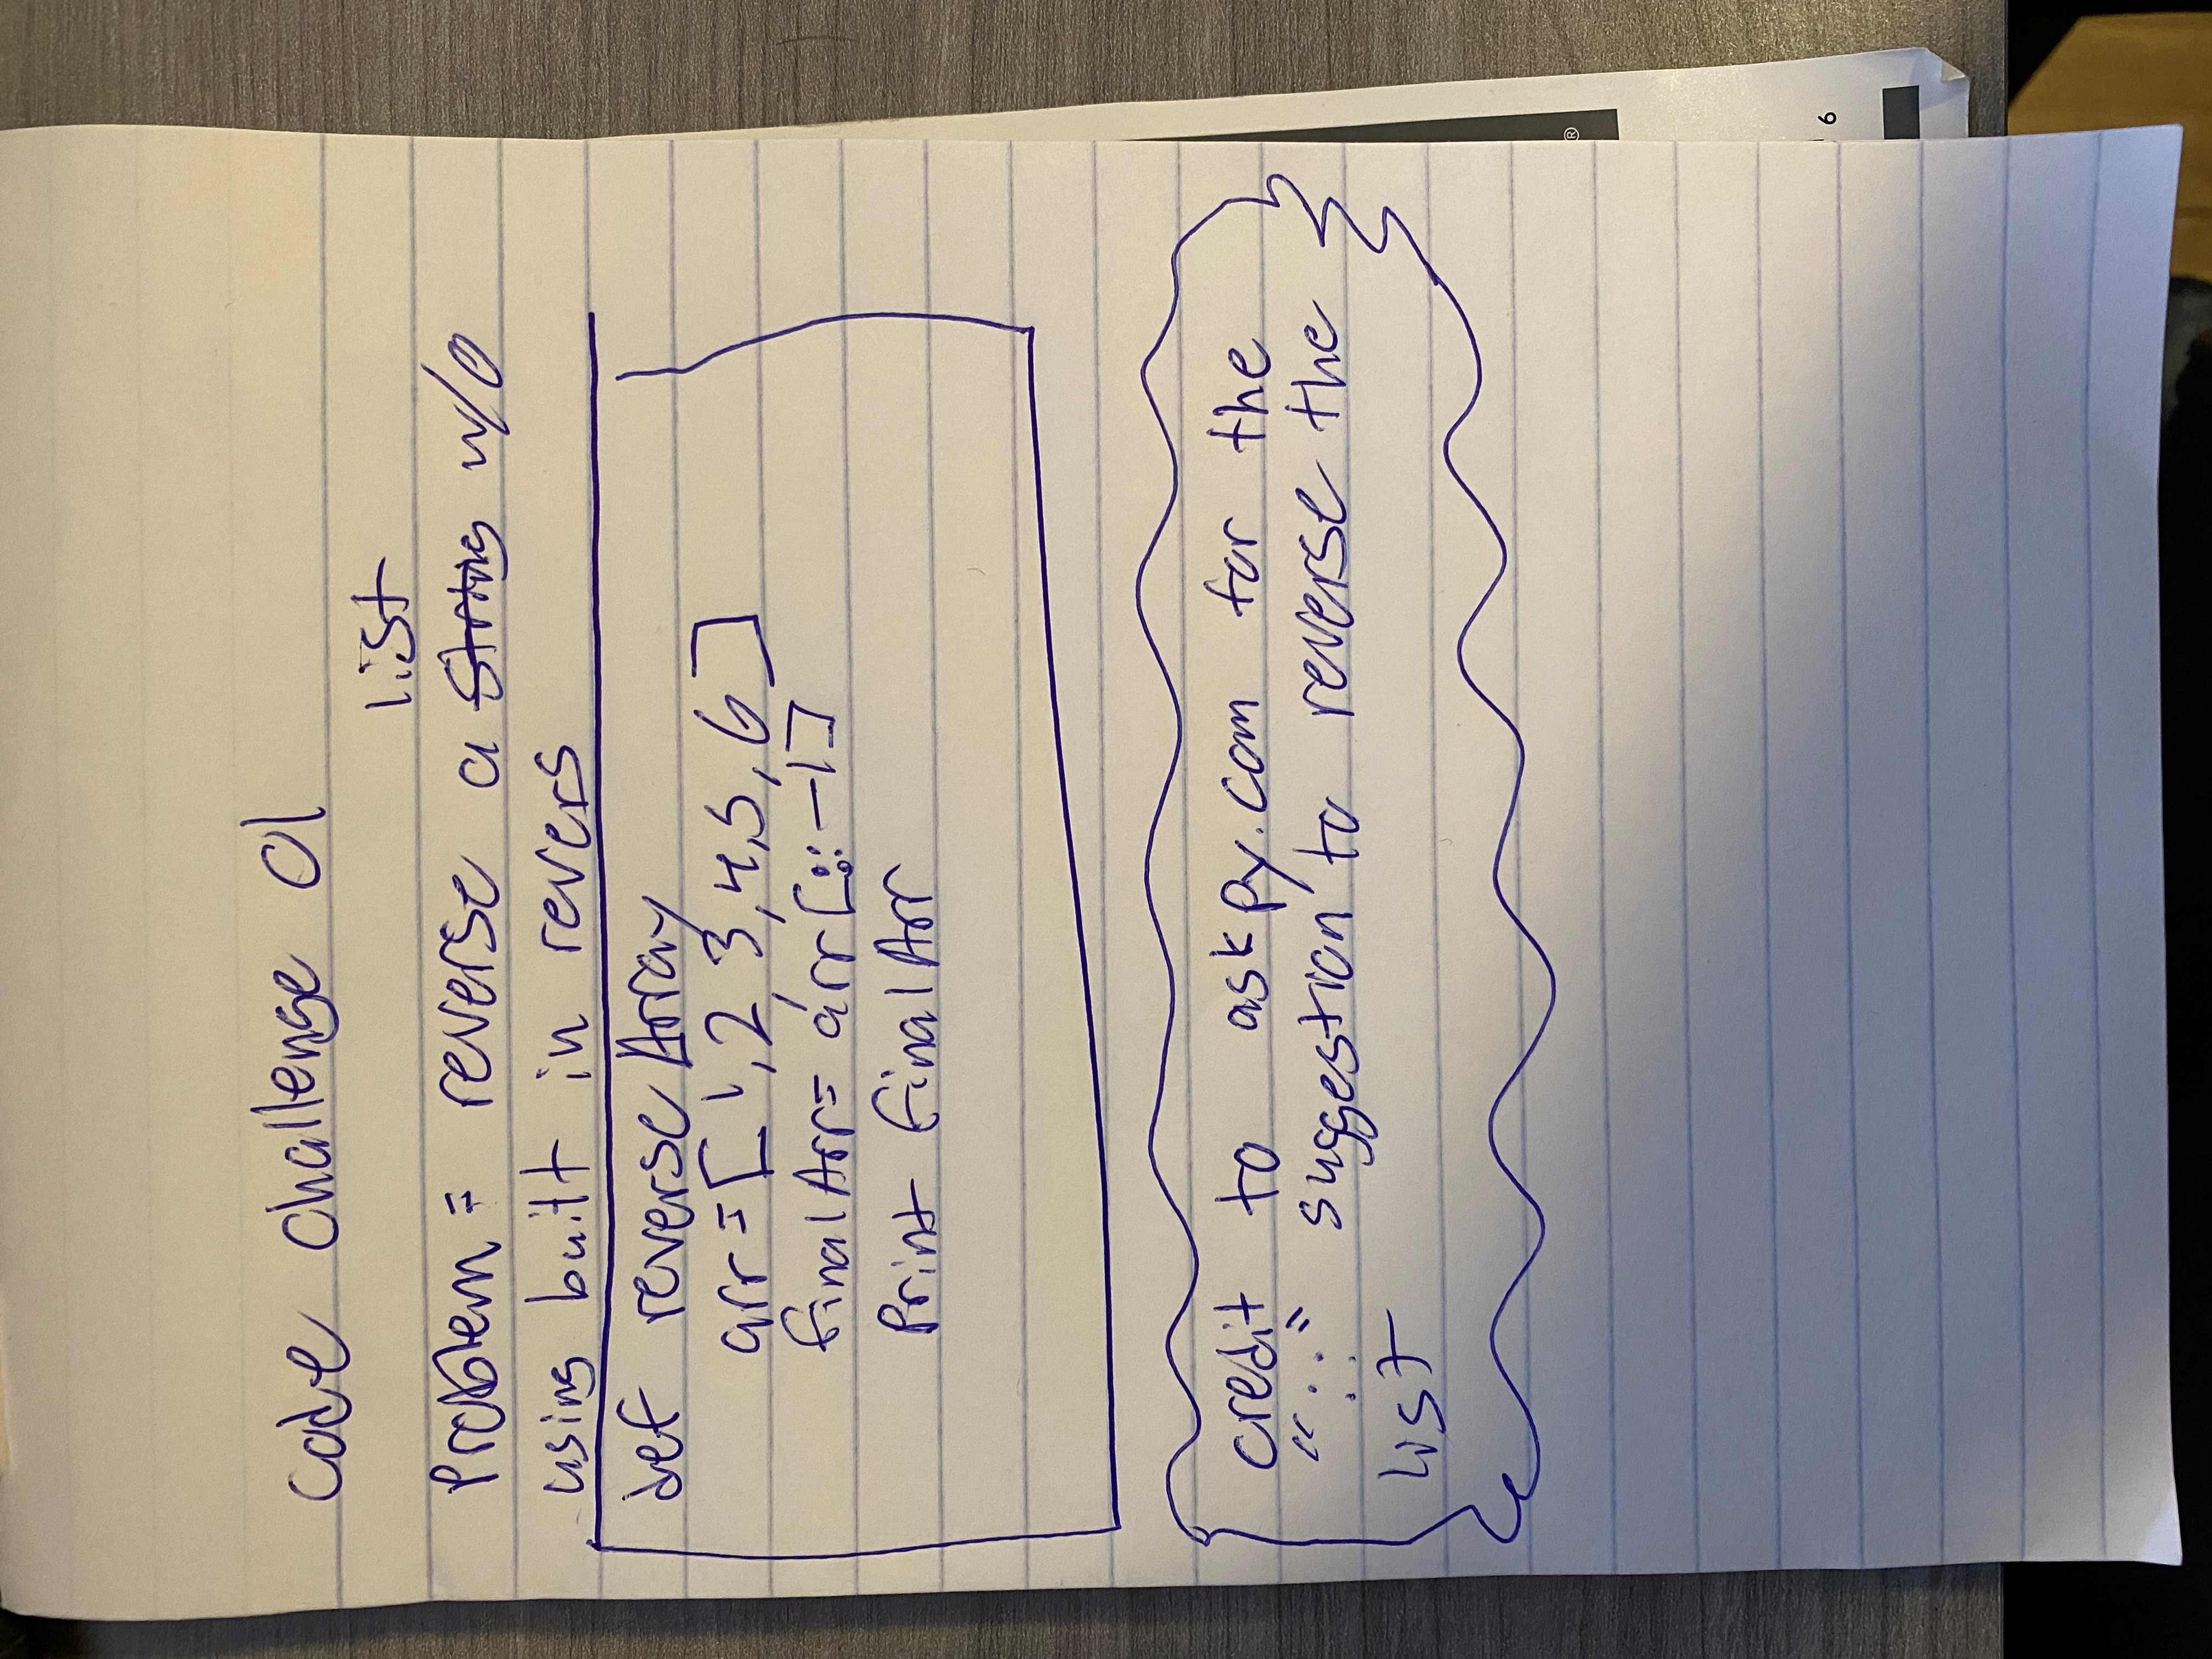 Code Challenge 01
list
Problem = reverse a string w/o
using built in revers
def reverse Array
arr = [1,2 3,4,5,6]
final Arr = arr[::-1]
Print final Arr
credit to askpy.com for the
"::" suggestion to reverse the
list
®
6